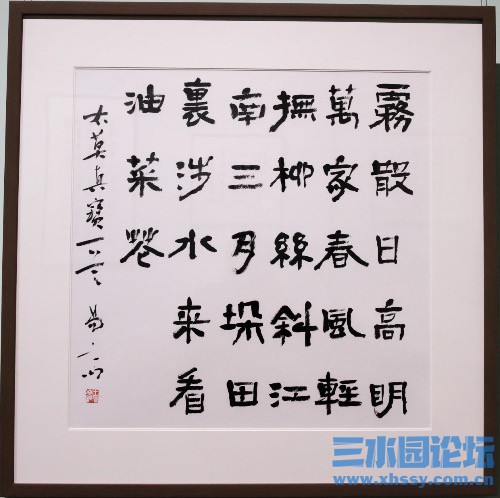 霧散日高明
萬家春風輕
撫柳絲斜江
南三月垛田
裏涉水來看
油菜花
莫真寶
三水园论坛
www.xhssy.com.cn